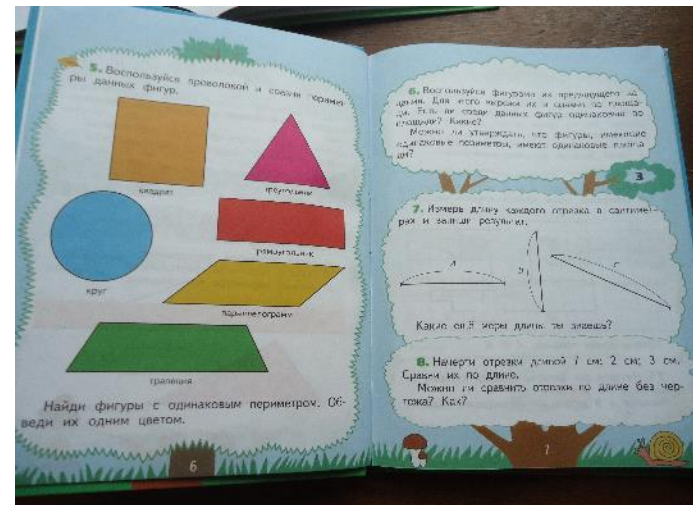 5. Воспользуйся проволокой и сравни перимет-
ры данных фигур.
квадрат
треугольник
прямоугольник
круг
параллелограмм
трапеция
Найди фигуры с одинаковым периметром. Об-
веди их одним цветом.
6
6. Воспользуйся фигурами из предыдущего за-
дания. Для этого вырежи их и сравни по площа-
ди. Есть ли среди данных фигур одинаковые по
площади? Какие?
Можно ли утверждать, что фигуры, имеющие
одинаковые периметры, имеют одинаковые площа-
ди?
3
7. Измерь длину каждого отрезка в сантимет-
рах и запиши результат.
A
B
C
Какие ещё меры длины ты знаешь?
8. Начерти отрезки длиной 7 см; 2 см; 3 см.
Сравни их по длине.
Можно ли сравнить отрезки по длине без чер-
тежа? Как?
7